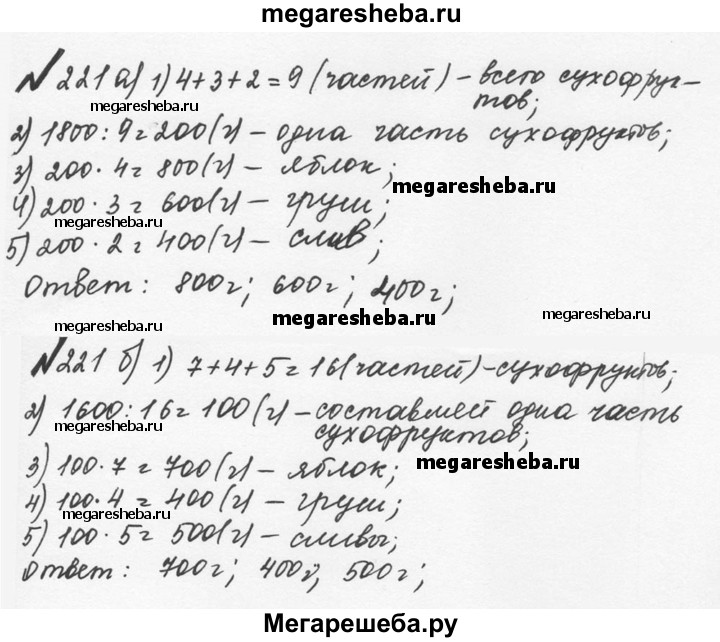 megaresheba.ru
№ 221 а) 1) 4+3+2=9 (частей) - всего сухофрук-
тов;
megaresheba.ru
2) 1800:9=200(г) - одна часть сухофруктов;
3) 200·4=800(г) - яблок;
megaresheba.ru
4) 200·3=600(г) - груш;
megaresheba.ru
5) 200·2=400(г) - слив;
Ответ: 800г; 600г; 400г;
megaresheba.ru
megaresheba.ru
№221 б) 1) 7+4+5=16(частей)-сухофруктов;
2) 1600:16=100(г)-составляет одна часть
megaresheba.ru
сухофруктов;
3) 100·7=700(г) - яблок;
megaresheba.ru
4) 100·4=400(г) - груш;
megaresheba.ru
5) 100·5=500(г) - сливы;
Ответ: 700г; 400г; 500г;
Мегарешеба.ру